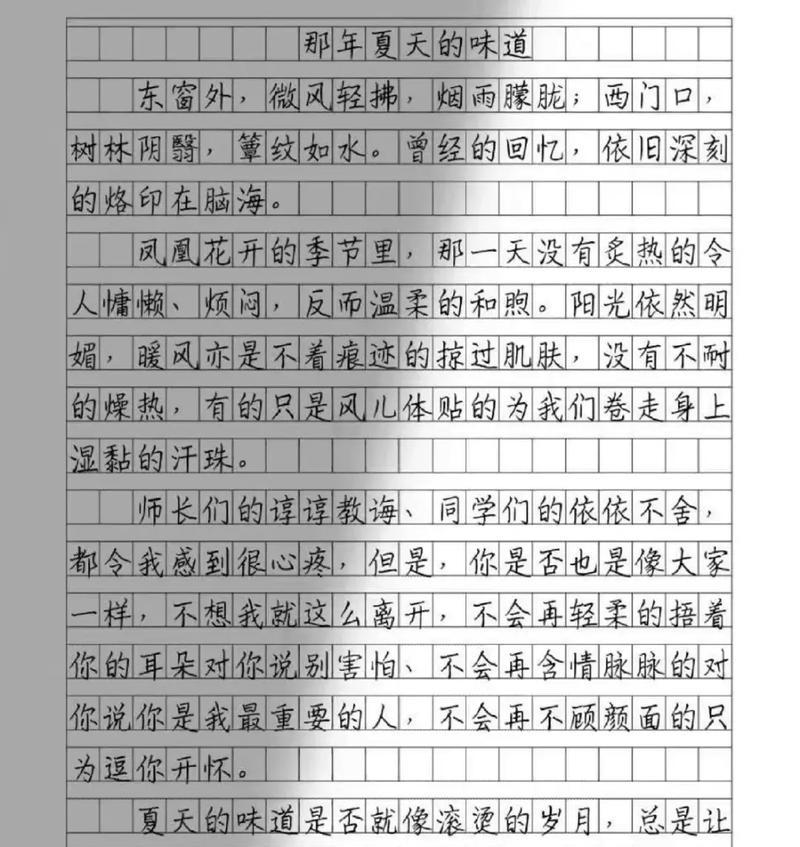 那年夏天的味道
东窗外，微风轻拂，烟雨朦胧；西门口，
树林阴翳，簟纹如水。曾经的回忆，依旧深刻
的烙印在脑海。
凤凰花开的季节里，那一天没有炙热的令
人慵懒、烦闷，反而温柔的和煦。阳光依然明
媚，暖风亦是不着痕迹的掠过肌肤，没有不耐
的燥热，有的只是风儿体贴的为我们卷走身上
湿黏的汗珠。
师长们的谆谆教诲、同学们的依依不舍，
都令我感到很心疼，但是，你是否也是像大家
一样，不想我就这么离开，不会再轻柔的捂着
你的耳朵对你说别害怕、不会再含情脉脉的对
你说你是我最重要的人，不会再不顾颜面的只
为逗你开怀。
夏天的味道是否就像滚烫的岁月，总是让